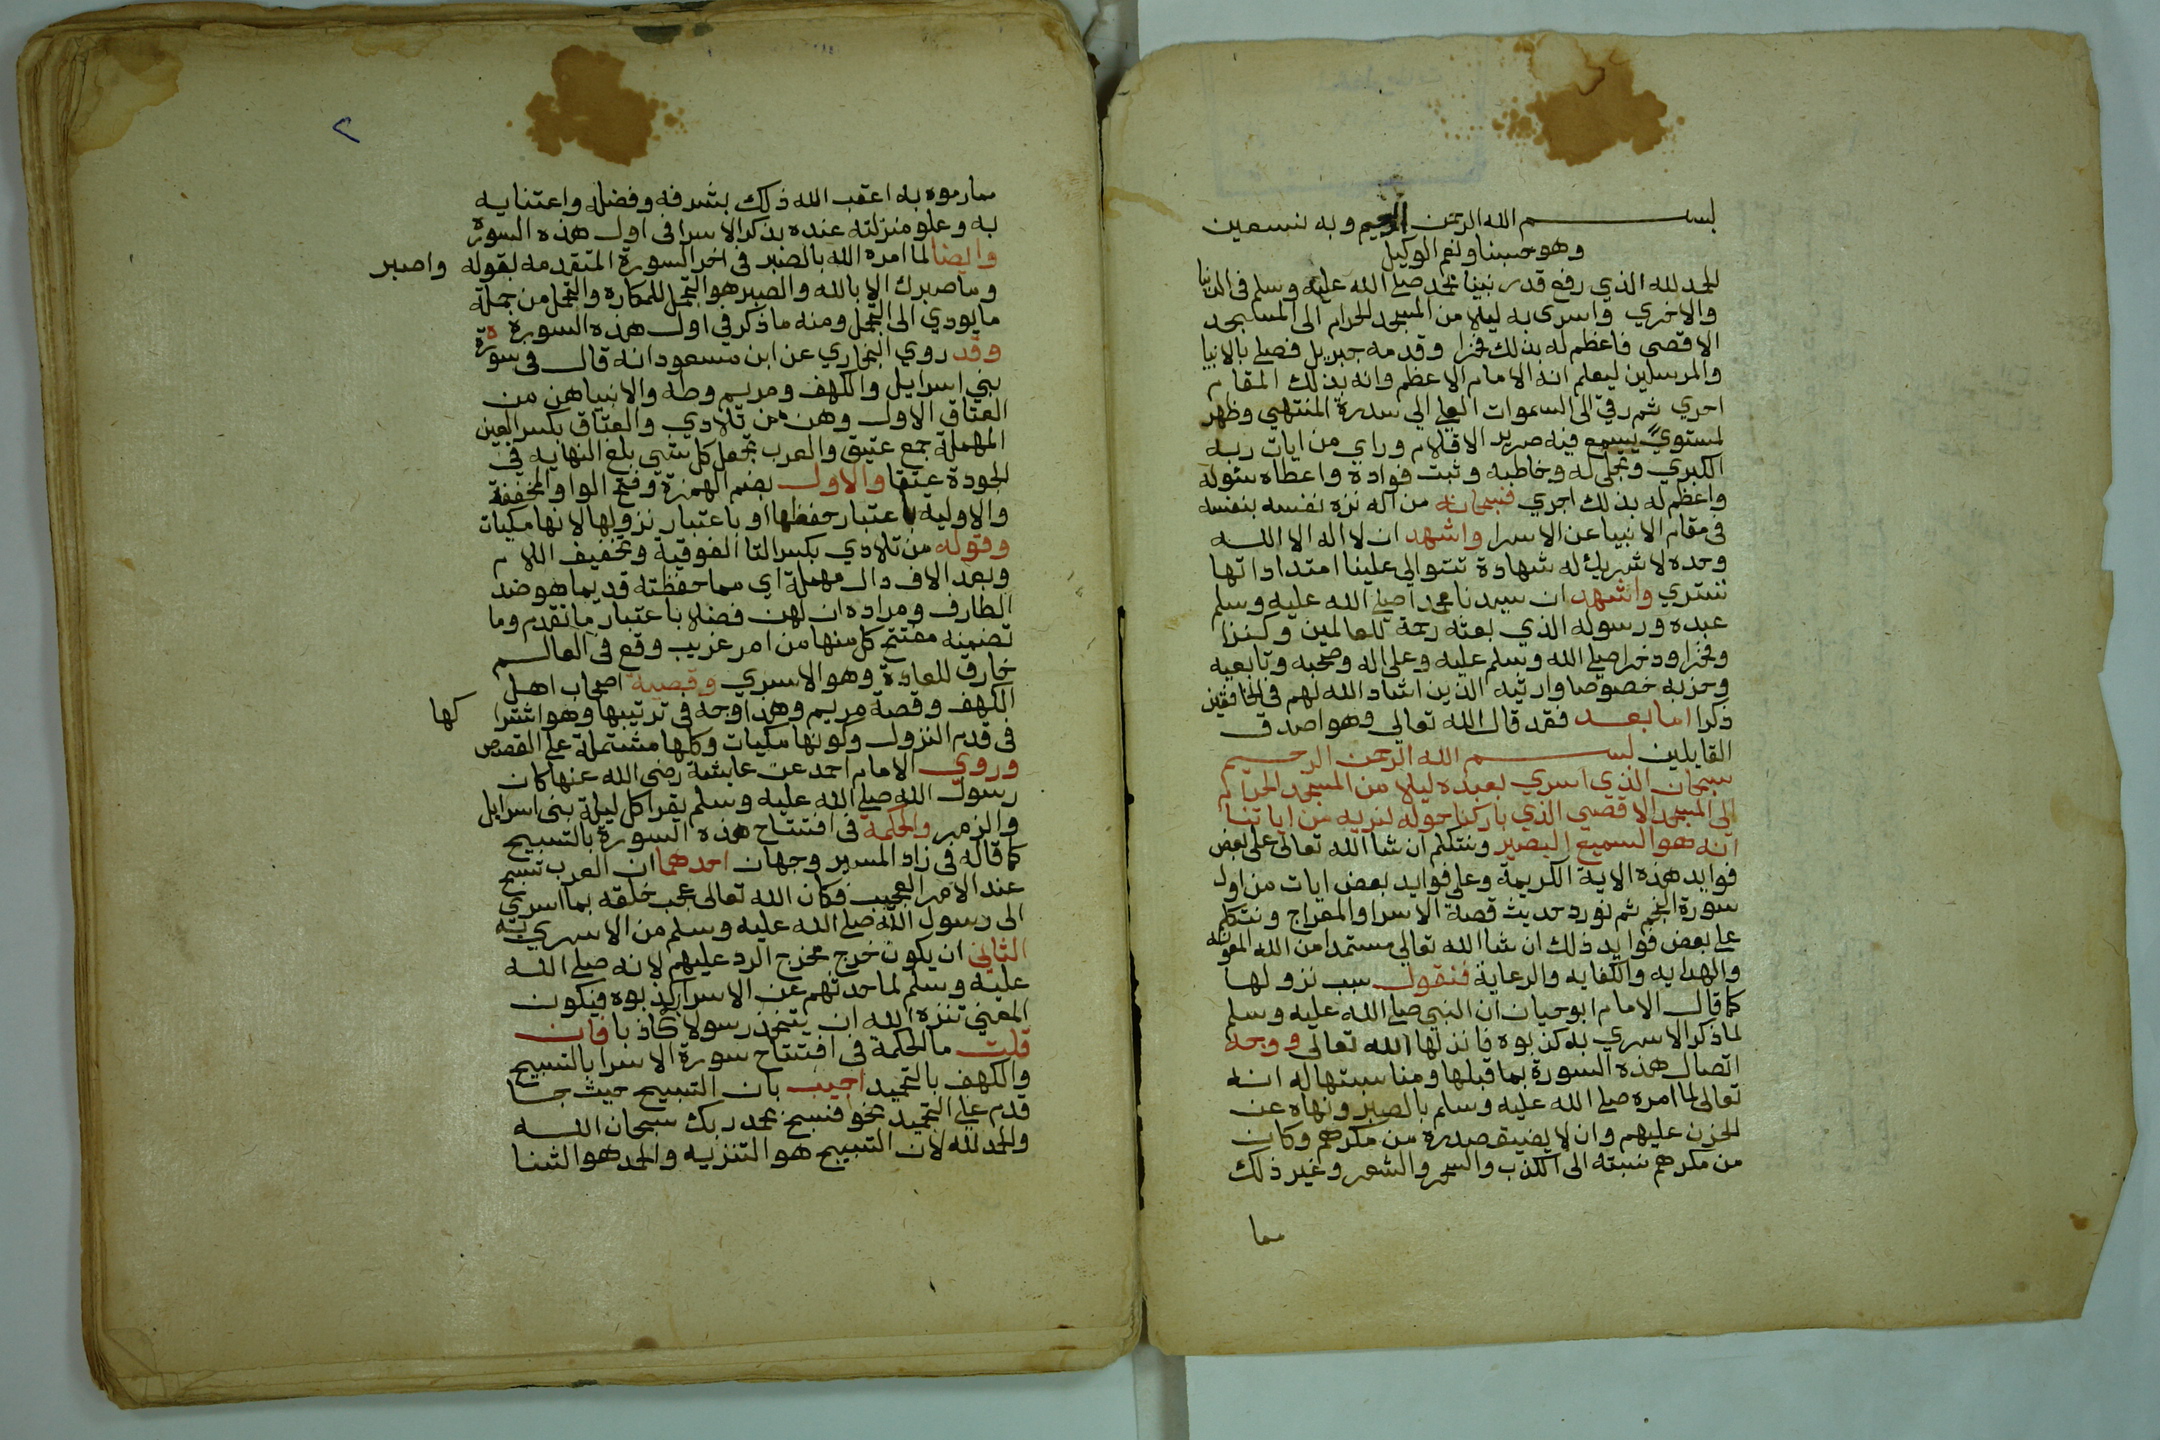 بسم الله الرحمن الرحيم وبه نستعين
وهو حسبنا ونعم الوكيل
الحمد لله الذي رفع قدر نبينا محمد صلى الله عليه وسلم في الدنيا
والاخري واسرى به ليلا من المسجد الحرام الى المسجد
الاقصى فاعظم له بذلك فخرا وقدمه جبريل فصلى بالانبيا
والمرسلين ليعلم انه الامام الاعظم وانه بذلك المقام
احري ثم رقي الى السموات العلي الي سدرة المنتهي وظهر
لمستوي يسمع فيه صرير الاقلام وراي من ايات ربه
الكبري وتجلى له وخاطبه وثبت فواده واعطاه سئوله
واعظم له بذلك اجري فسبحانه من اله نزه نفسه بنفسه
في مقام الانبيا عن الاسرا واشهد ان لا اله الا الله
وحده لا شريك له شهادة تتوالي علينا امتداداتها
تتري واشهد ان سيدنا محمدا صلى الله عليه وسلم
عبده ورسوله الذي بعثه رحمة للعالمين وكنزا
وفخرا وذخرا صلى الله وسلم عليه وعلى اله وصحبه وتابعيه
وحزبه خصوصا وارثيه الذين اشاد الله لهم في الخافقين
ذكرا اما بعد فقد قال الله تعالى وهو اصدق
القايلين بسم الله الرحمن الرحيم
سبحان الذي اسري بعبده ليلا من المسجد الحرام
الى المسجد الاقصي الذي باركنا حوله لنريه من اياتنا
انه هو السميع البصير ونتكلم ان شا الله تعالى على بعض
فوايد هذه الاية الكريمة وعلى فوايد بعض ايات من اول
سورة النجم ثم نورد حديث قصة الاسرا والمعراج ونتكلم
على بعض فوايد ذلك ان شا الله تعالي مستمدا من الله المعونه
والهدايه والكفايه والرعاية فنقول سبب نزولها
كما قال الامام ابو حيان ان النبي صلى الله عليه وسلم
لما ذكر الاسري به كذبوه فانزلها الله تعالى ووجه
اتصال هذه السورة بما قبلها ومناسبتها له انه
تعالى لما امره صلى الله عليه وسلم بالصبر ونهاه عن
الحزن عليهم وان لا يضيق صدره من مكرهم وكان
من مكرهم نسبته الى الكذب والسحر والشعر وغير ذلك
مما
٢
مما رموه به اعقب الله ذلك بشرفه وفضله واعتنايه
به وعلو منزلته عنده بذكر الاسرا في اول هذه السورة
وايضا لما امره الله بالصبر في اخر السورة المتقدمه بقوله واصبر
وما صبرك الا بالله والصبر هو التحمل للمكاره والتحمل من جملة
ما يودي الى التجمل ومنه ما ذكر في اول هذه السورة
وقد روي البخاري عن ابن مسعود انه قال في سورة
بني اسرايل والكهف ومريم وطه والانبيا هن من
العتاق الاول وهن من تلادي والعتاق بكسر العين
المهملة جمع عتيق والعرب تجعل كل شي بلغ النهايه في
الجودة عتيقا والاول بضم الهمزة وفتح الواو المخففة
والاوليه باعتبار حفظها او باعتبار نزولها لانها مكيات
وقوله من تلادي بكسر التا الفوقية وتخفيف اللام
وبعد الالف دال مهملة اي مما حفظته قديما هو ضد
الطارف ومراده ان لهن فضلا باعتبار ما تقدم وما
تضمنه مفتتح كل منها من امر غريب وقع في العالم
خارق للعادة وهو الاسري وقصة اصحاب اهل
الكهف وقصة مريم وهذا وجه في ترتيبها وهو اشترا كها
في قدم النزول وكونها مكيات وكلها مشتملة على القصص
وروي الامام احمد عن عايشة رضي الله عنها كان
رسول الله صلى الله عليه وسلم يقرا كل ليلة بنى اسرايل
والزمر والحكمة في افتتاح هذه السورة بالتسبيح
كما قاله في زاد المسير وجهان احدهما ان العرب تسبح
عند الامر العجيب فكان الله تعالى عجب خلقه بما اسري
الى رسول الله صلى الله عليه وسلم من الاسري به
الثاني ان يكون خرج مخرج الرد عليهم لانه صلى الله
عليه وسلم لما حدثهم عن الاسرا كذبوه فيكون
المعني تنزه الله ان يتخذ رسولا كاذبا فان
قلت ما الحكمة في افتتاح سورة الاسرا بالتسبيح
والكهف بالتحميد اجيب بان التسبيح حيث جا
قدم على التحميد نحو فسبح بحمد ربك سبحان الله
والحمد لله لان التسبيح هو التنزيه والحمد هو الثنا